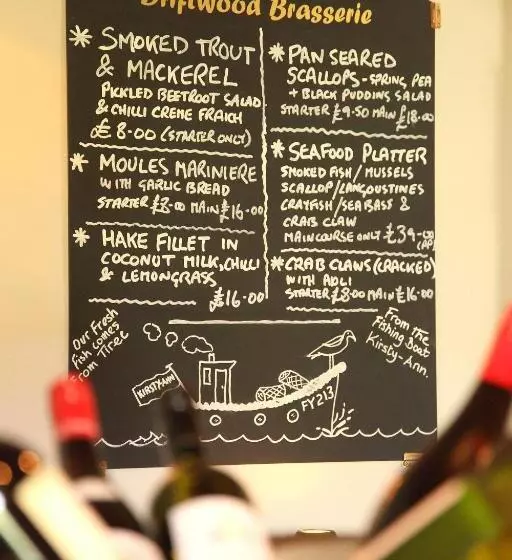 Driftwood Brasserie
* SMOKED TROUT
& MACKEREL
PICKLED BEETROOT SALAD
& CHILLI CREME FRAICH
£8.00 (STARTER ONLY)
* MOULES MARINIERE
WITH GARLIC BREAD
STARTER £8.00 MAIN £16.00
* HAKE FILLET IN
COCONUT MILK, CHILLI
& LEMONGRASS
£16.00
* PAN SEARED
SCALLOPS - SPRING, PEA
+ BLACK PUDDING SALAD
STARTER £9.50 MAIN £18.00
* SEAFOOD PLATTER
SMOKED FISH / MUSSELS
SCALLOP / LANGOUSTINES
CRAYFISH / SEA BASS &
CRAB CLAW
MAIN COURSE ONLY £39.00
* CRAB CLAWS (CRACKED)
WITH AOLI
STARTER £8.00 MAIN £16.00
Our Fresh
Fish comes
from Tiree
From the
Fishing Boat
Kirsty-Ann.
KIRSTYANN
FY213